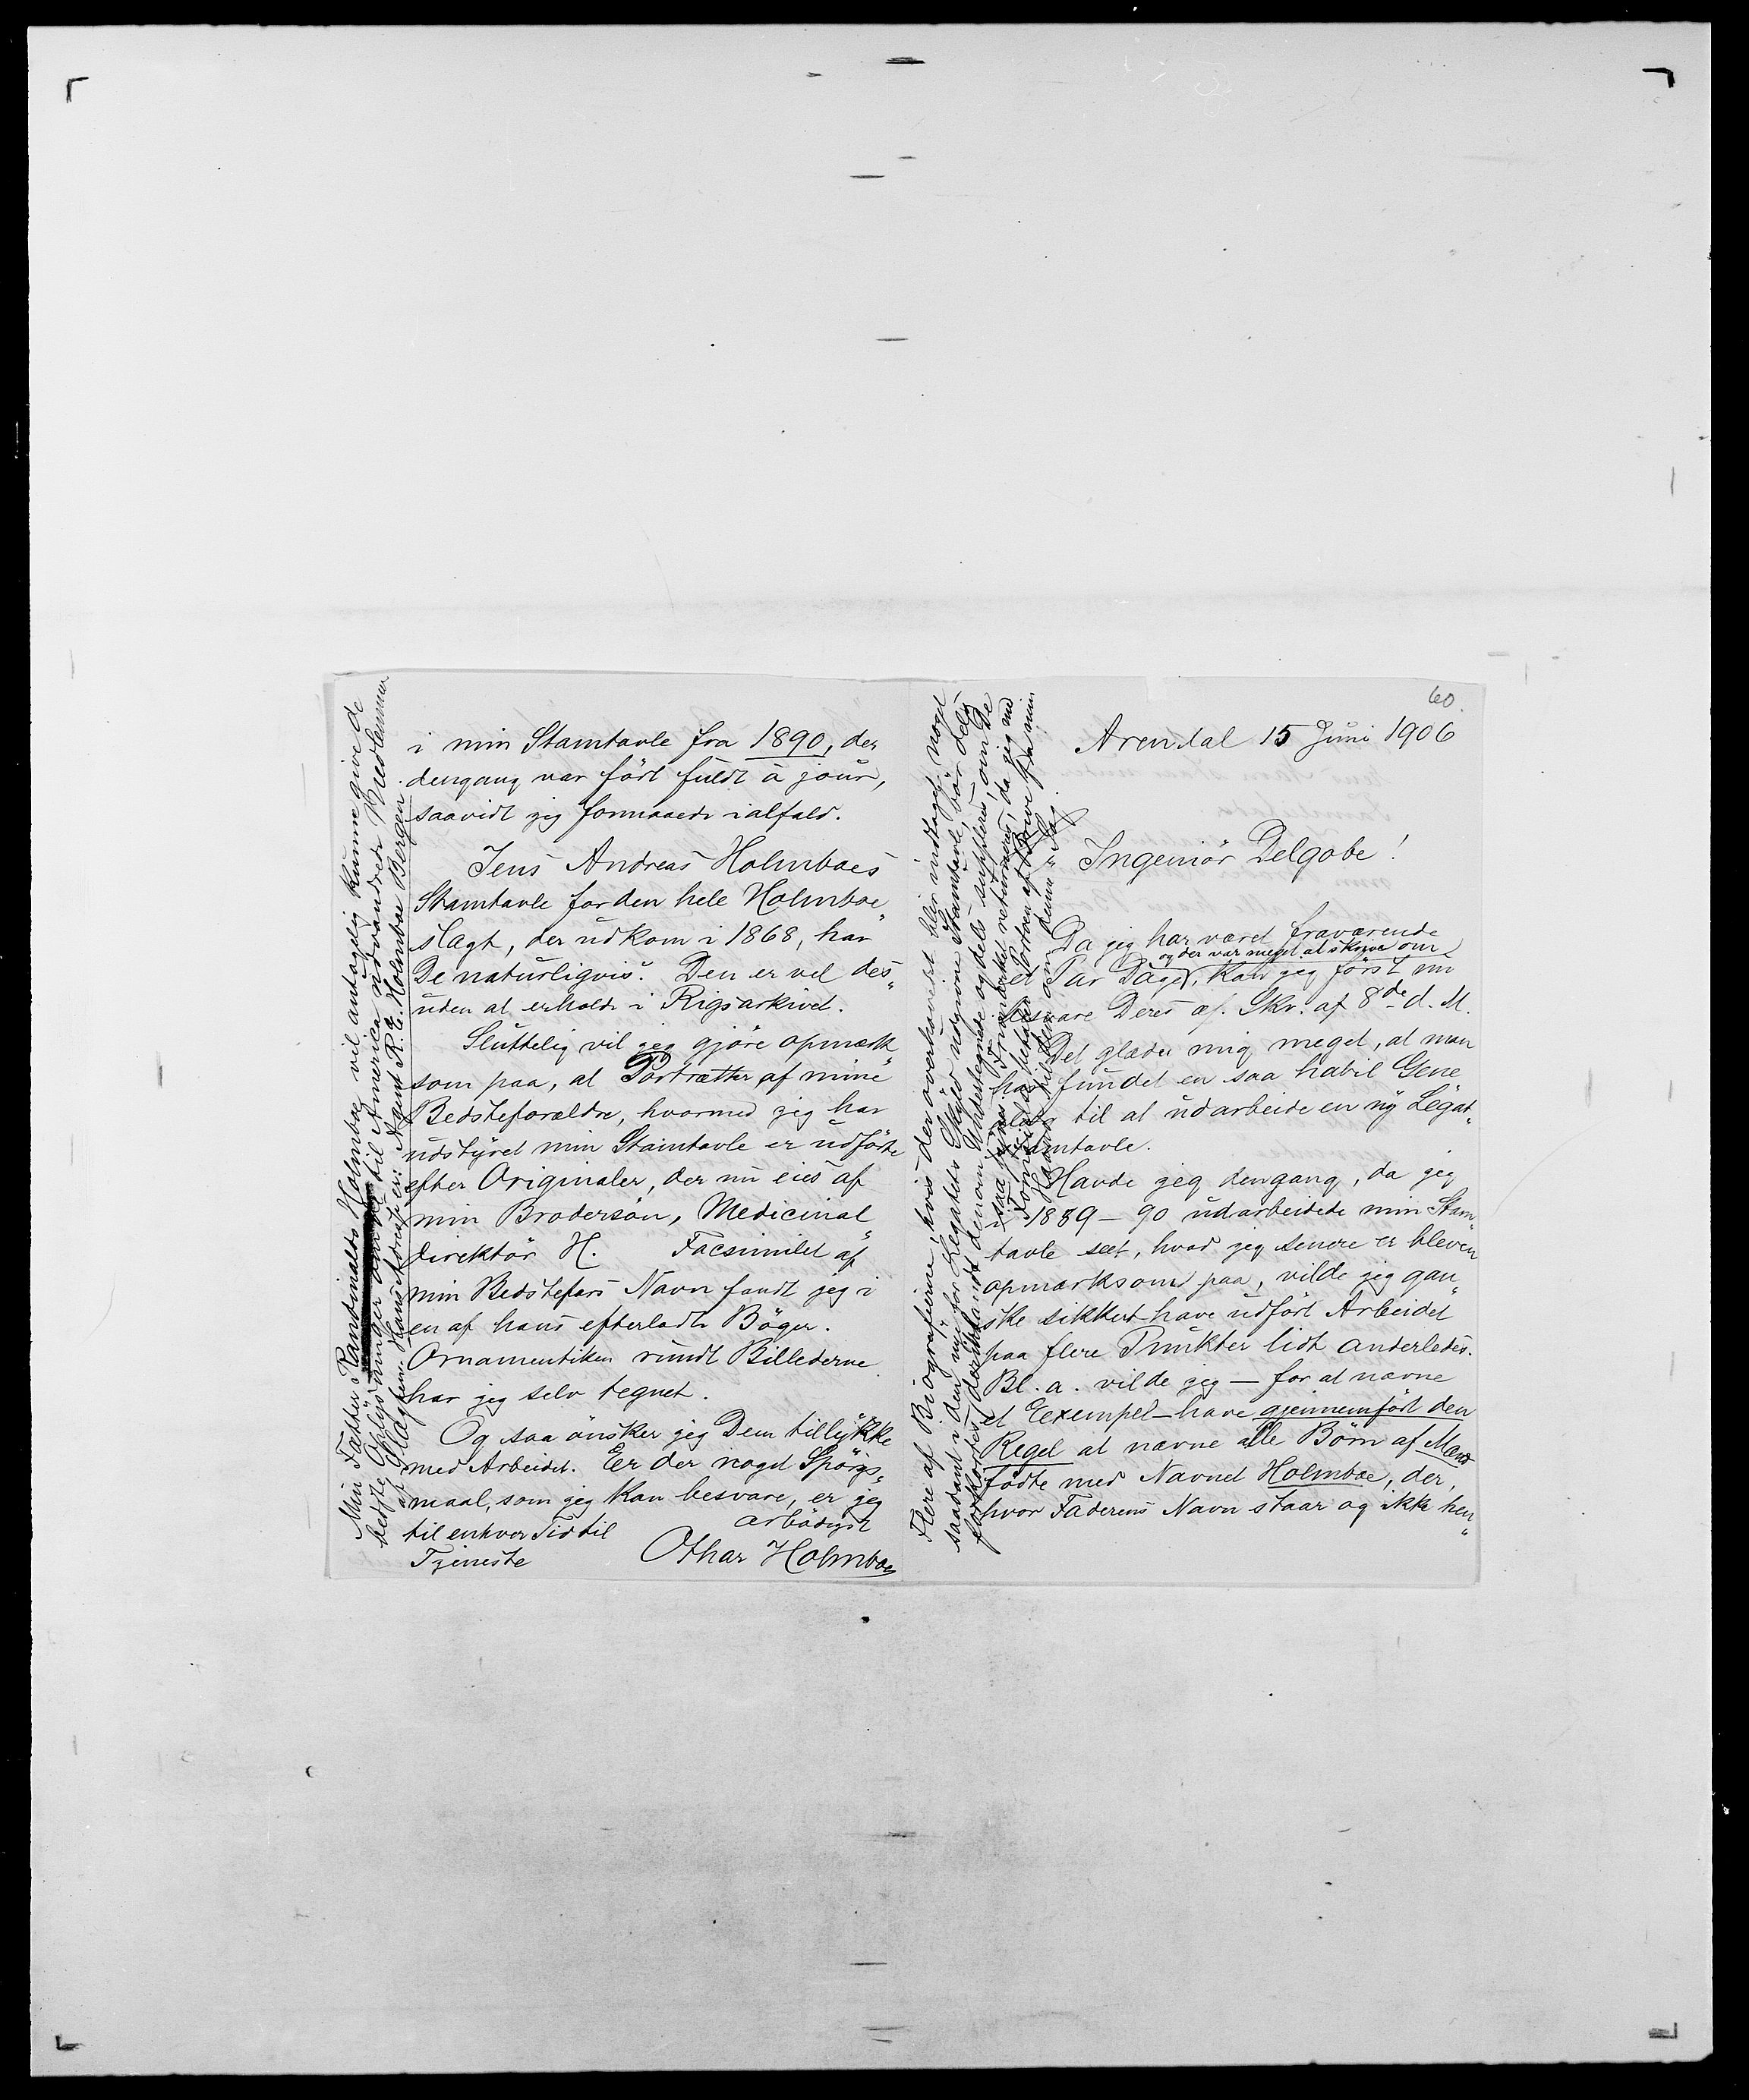 60.
Arendal 15 Juni 1906
Ingeniör Delgobe!
Da jeg har været fraværende
og der var meget at skrive om
et Par Dage, kan jeg först nu
besvare Deres æ. Skr. af 8de d. M.
Det glæder mig meget, at man
har fundet en saa habil Gene
alog til at udarbeide en ny Legat„
stamtavle.
Havde jeg dengang, da jeg
i 1889-90 udarbeidede min Stam„
tavle seet, hvad jeg senere er bleven
opmærksom paa, vilde jeg gan„
ske sikkert have udfört Arbeidet
paa flere Punkter lidt anderledes.
Bl. a. vilde jeg — for at nævne
et Exempel — have gjennemfört den
Regel at nævne alle Börn af Mænd
födte med Navnet Holmboe, der,
hvor Faderens Navn staar og ikke hen„
Flere af Biografierne, hvis der överhovedet blir indtaget noget
saadant i den nye for Legatets Skyld udgivne Stamtavle, bör dels
forkortes, dels suppleres, om De
i min Stamtavle fra 1890, der
dengang var fört fuldt à jour,
saavidt jeg formaaede ialfald.
Jens Andreas Holmboes
Stamtavle for den hele Holmboe„
slægt, der udkom i 1868, har
De naturligvis. Den er vel des„
uden at erholde i Rigsarkivet.
Sluttelig vil jeg gjöre opmærk„
som paa, at Portrætter af mine
Bedsteforældre, hvormed jeg har
udstyret min Stamtavle er udförte
efter Originaler, der nu eies af
min Brodersön, Medicinal„
direktör H. Facsimilet af
min Bedstefars Navn fandt jeg i
en af hans efterladte Böger.
Ornamentiken rundt Billederne
har jeg selv tegnet.
Og saa önsker jeg Dem tillykke
med Arbeidet. Er der noget Spörgs„
maal, som jeg kan besvare, er jeg
til enhver Tid til
Tjeneste
ærbödigst
Othar Holmboe
Min Fætter Randinaldo Holmboe vil antagelig kunne give de
bedste Oplysninger om de til Amerika udvandrede Medlemmer
af Slægten. Hans Adresse er: Agent R. E. Holmboe Bergen.